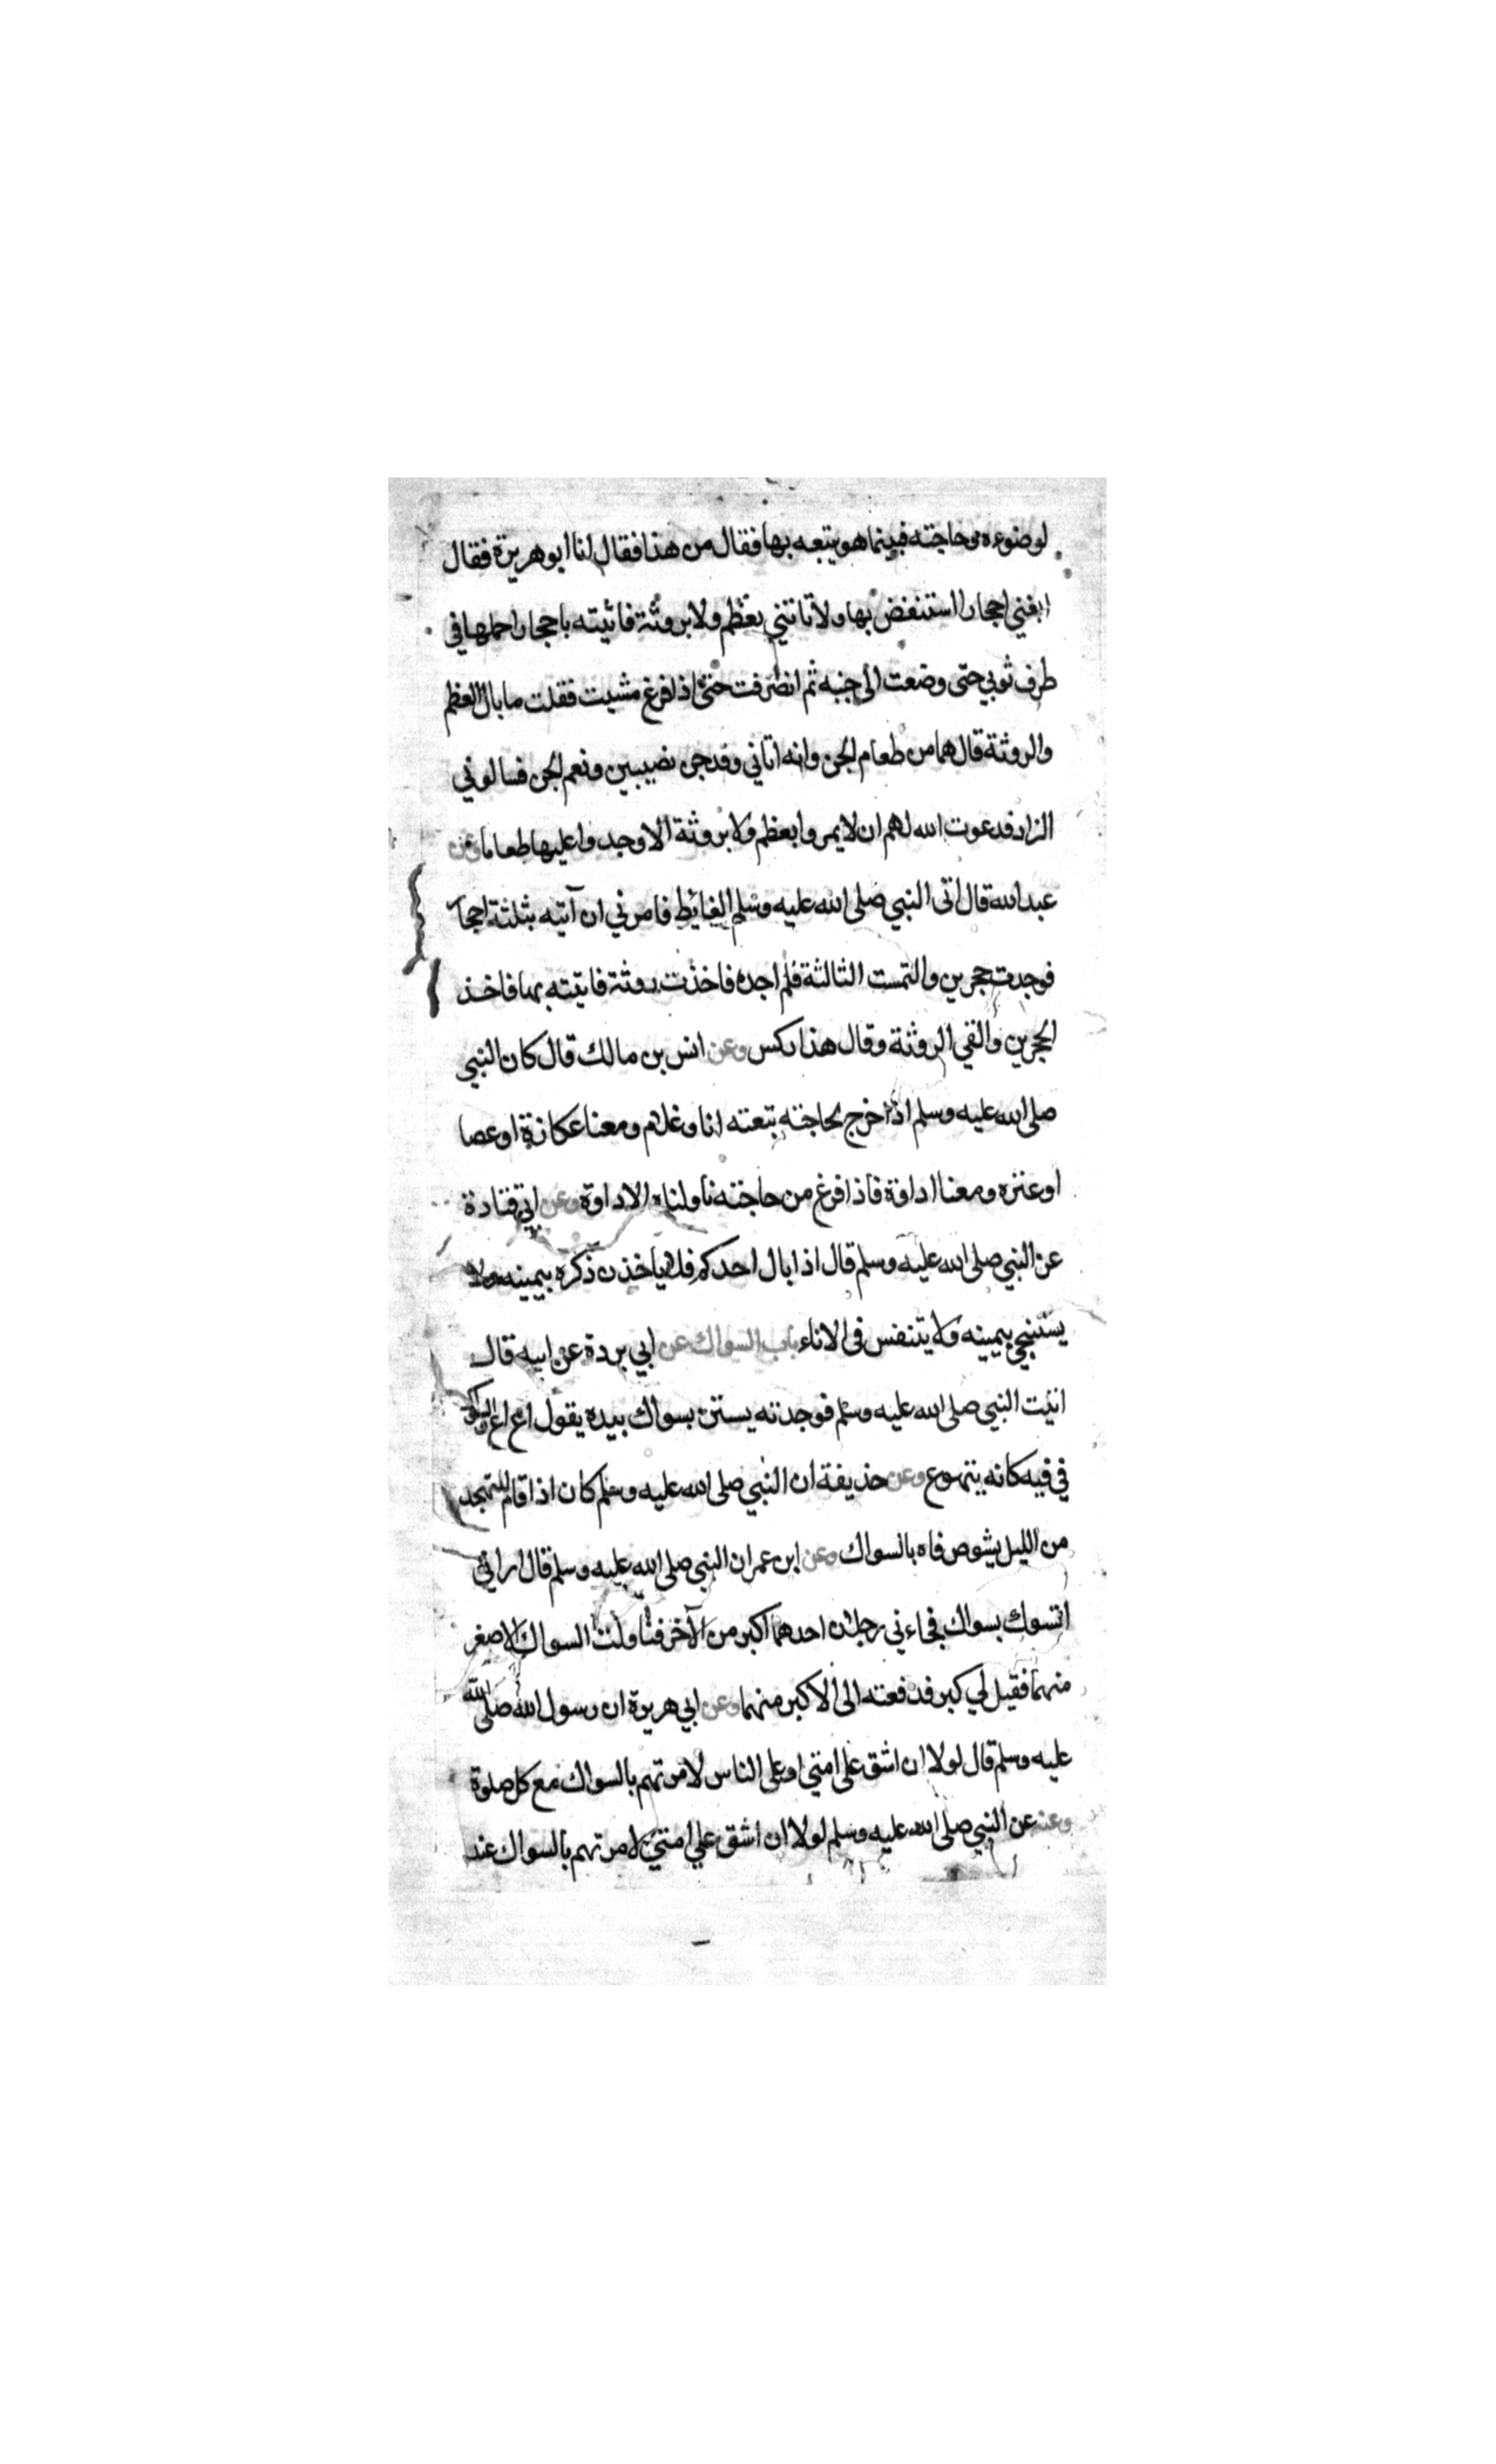 لوضوءه وحاجته فبينما هو يتبعه بها فقال من هذا فقال انا ابو هريرة فقال
ابغني احجارا استنفض بها ولا تاتني بعظم ولا بروثة فاتيته باحجار احملها في
طرف ثوبي حتى وضعت الى جنبه ثم انصرفت حتى اذا فرغ مشيت فقلت ما بال العظم
والروثة قال هما من طعام الجن وانه اتاني وفد جن نصيبين ونعم الجن فسالوني
الزاد فدعوت الله لهم ان لا يمروا بعظم ولا بروثة الا وجدوا عليها طعاما وعن
عبد الله قال اتى النبي صلى الله عليه وسلم الغايط فامرني ان آتيه بثلثة احجار
فوجدت حجرين والتمست الثالثة فلم اجده فاخذت روثة فاتيته بها فاخذ
الحجرين والقي الروثة وقال هذا ركس وعن انس بن مالك قال كان النبي
صلى الله عليه وسلم اذا خرج لحاجته تبعته انا وغلام ومعنا عكازة او عصا
او عنزه ومعنا اداوة فاذا فرغ من حاجته ناولناه الاداوة وعن ابي قتادة
عن النبي صلى الله عليه وسلم قال اذا بال احدكم فلا ياخذن ذكره بيمينه ولا
يستنجي بيمينه ولا يتنفس في الاناء باب السواك عن ابي بردة عن ابيه قال
اتيت النبي صلى الله عليه وسلم فوجدته يستن بسواك بيده يقول اع اع والسواك
في فيه كانه يتهوع وعن حذيفة ان النبي صلى الله عليه وسلم كان اذا قام للتهجد
من الليل يشوص فاه بالسواك وعن ابن عمر ان النبي صلى الله عليه وسلم قال اراني
اتسوك بسواك فجاءني رجلان احدهما اكبر من الآخر فناولت السواك الاصغر
منهما فقيل لي كبر فدفعته الى الاكبر منهما وعن ابي هريرة ان رسول الله صلى الله
عليه وسلم قال لولا ان اشق على امتي او على الناس لامرتهم بالسواك مع كل صلوة
وعنه عن النبي صلى الله عليه وسلم لولا ان اشق علي امتي لامرتهم بالسواك عند